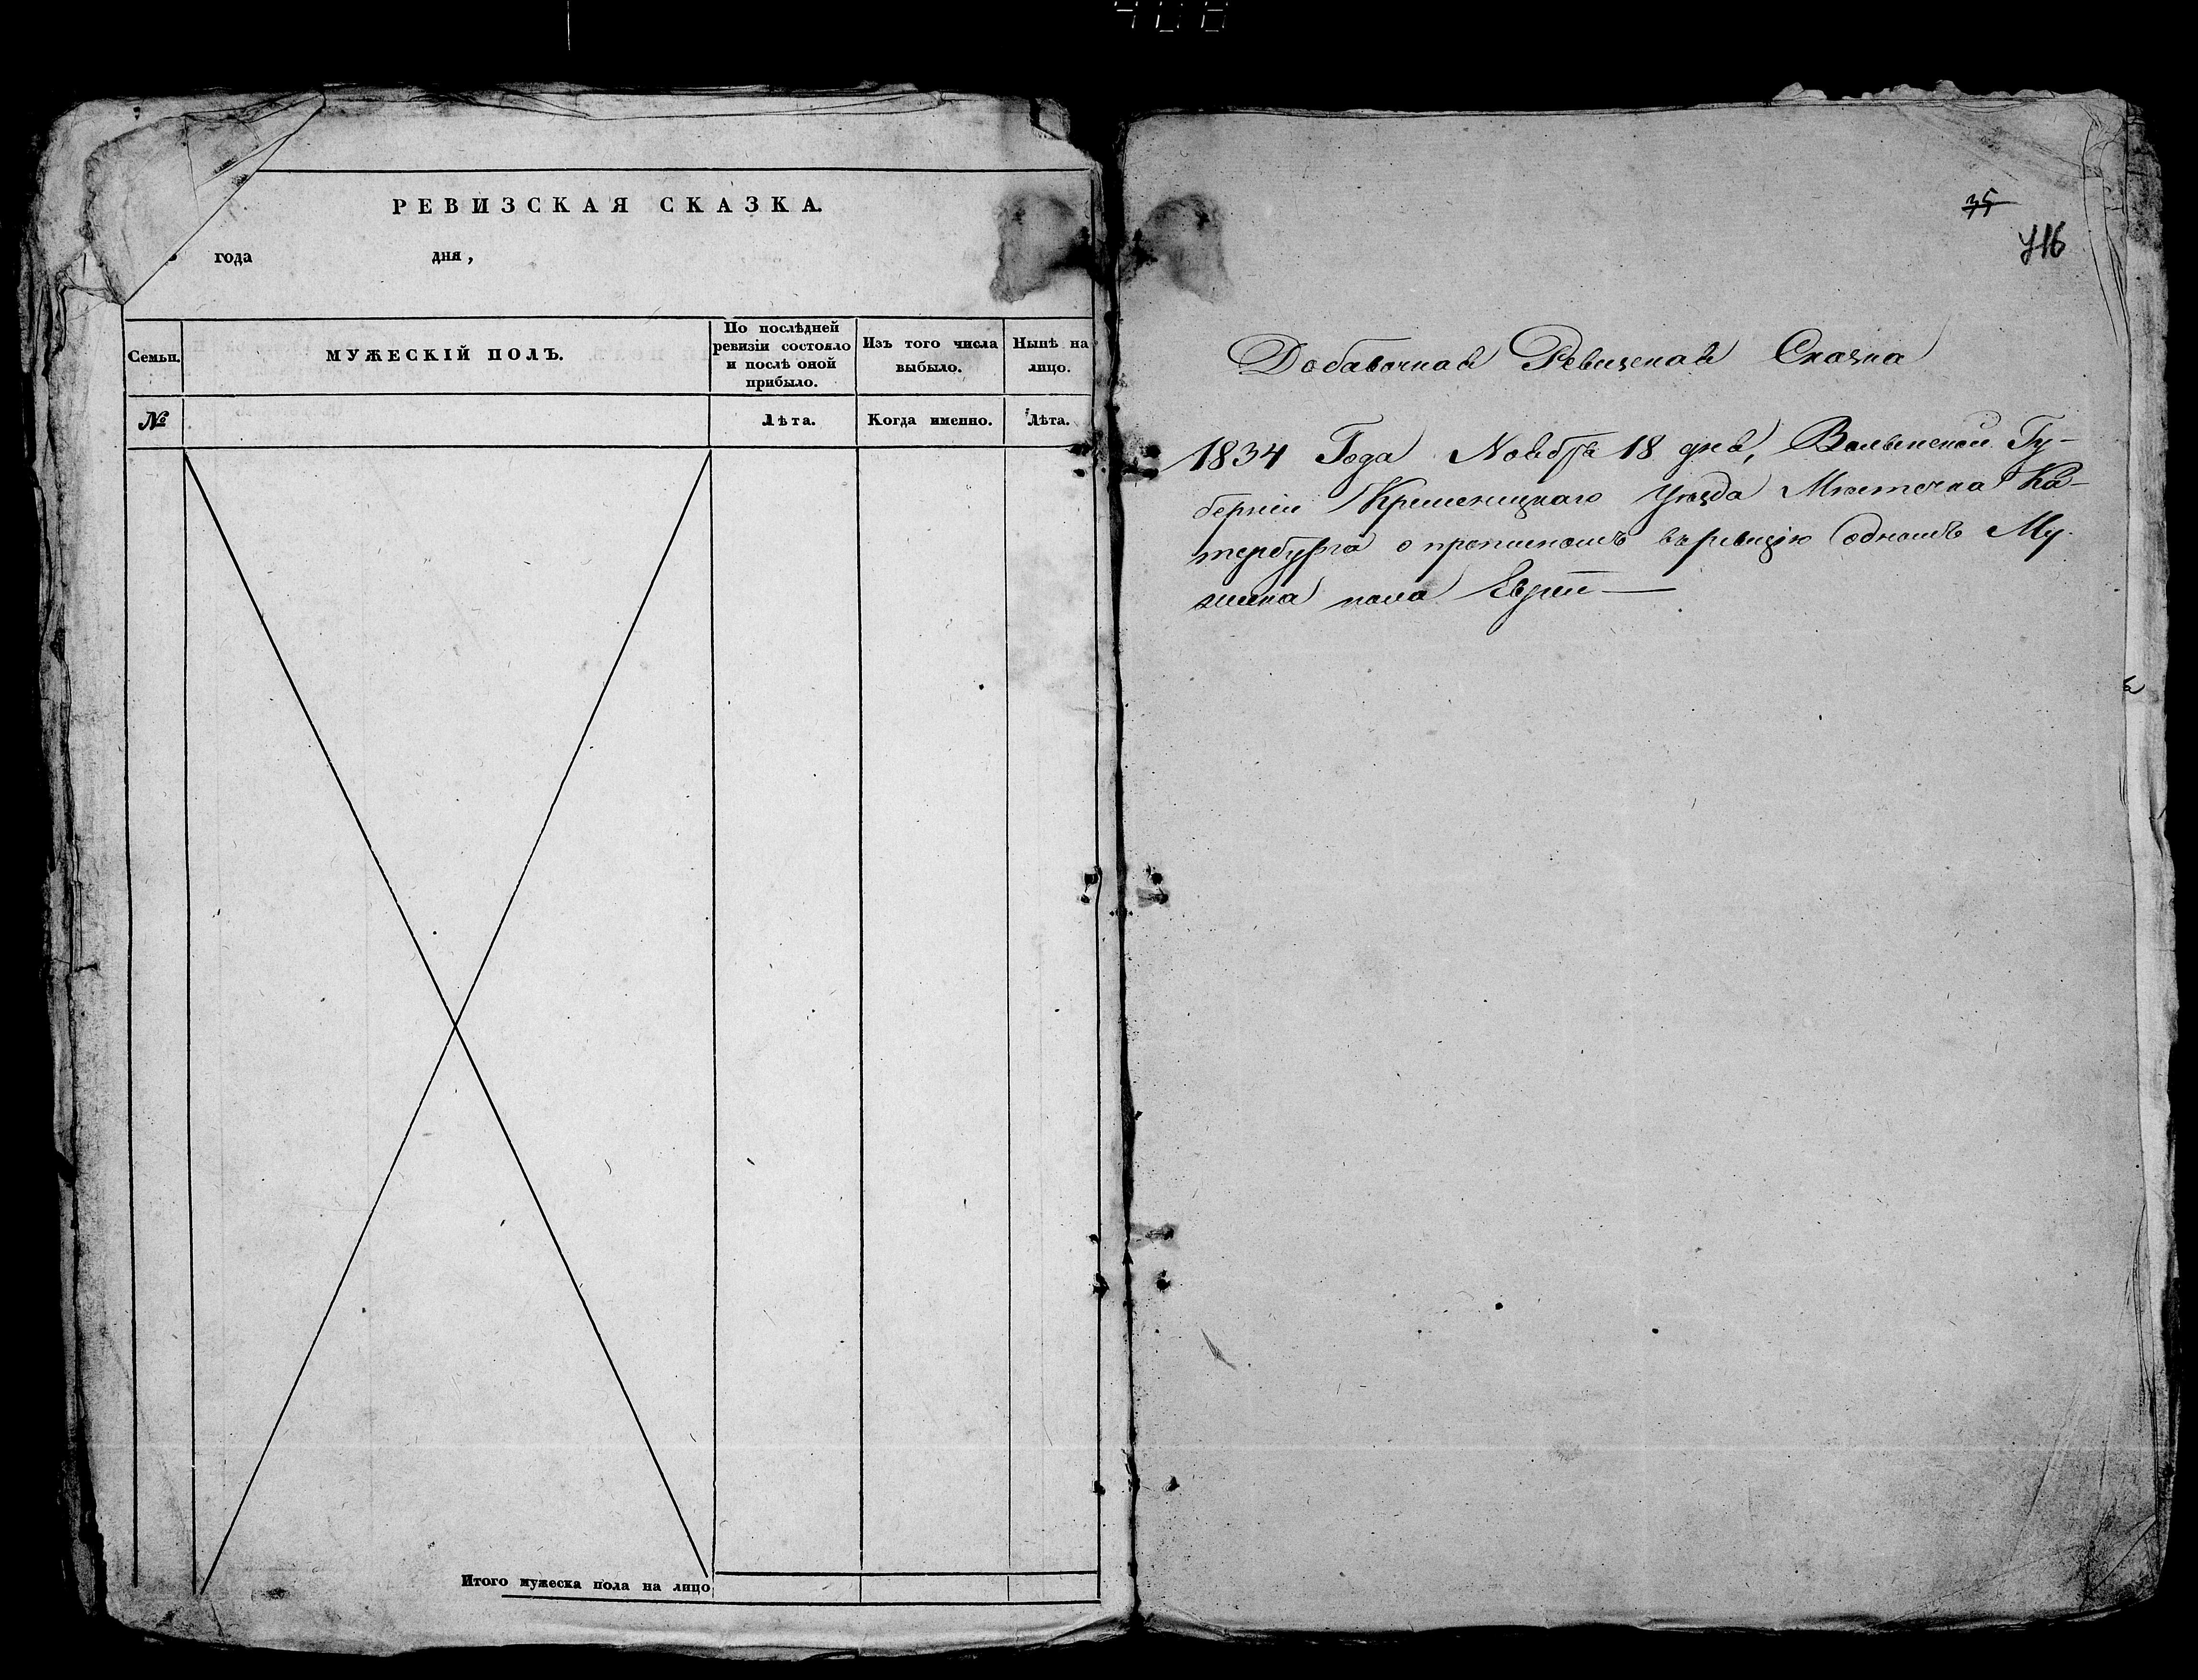 408
РЕВИЗСКАЯ СКАЗКА.
года дня,
Семьи.
МУЖЕСКІЙ ПОЛЪ.
По послѣдней
ревизіи состояло
и послѣ оной
прибыло.
Изъ того числа
выбыло.
Нынѣ на
лицо.
№
Лѣта.
Когда именно.
Лѣта.
Итого мужеска пола на лицо
35
716
Добавочная Ревизская Сказка
1834 Года Ноября 18 дня, Волынской Гу-
берніи Кременицкаго Уѣзда Мѣстечка Ка-
тербурга о прописномъ въ ревизію одномъ Му-
жеска пола Евреи